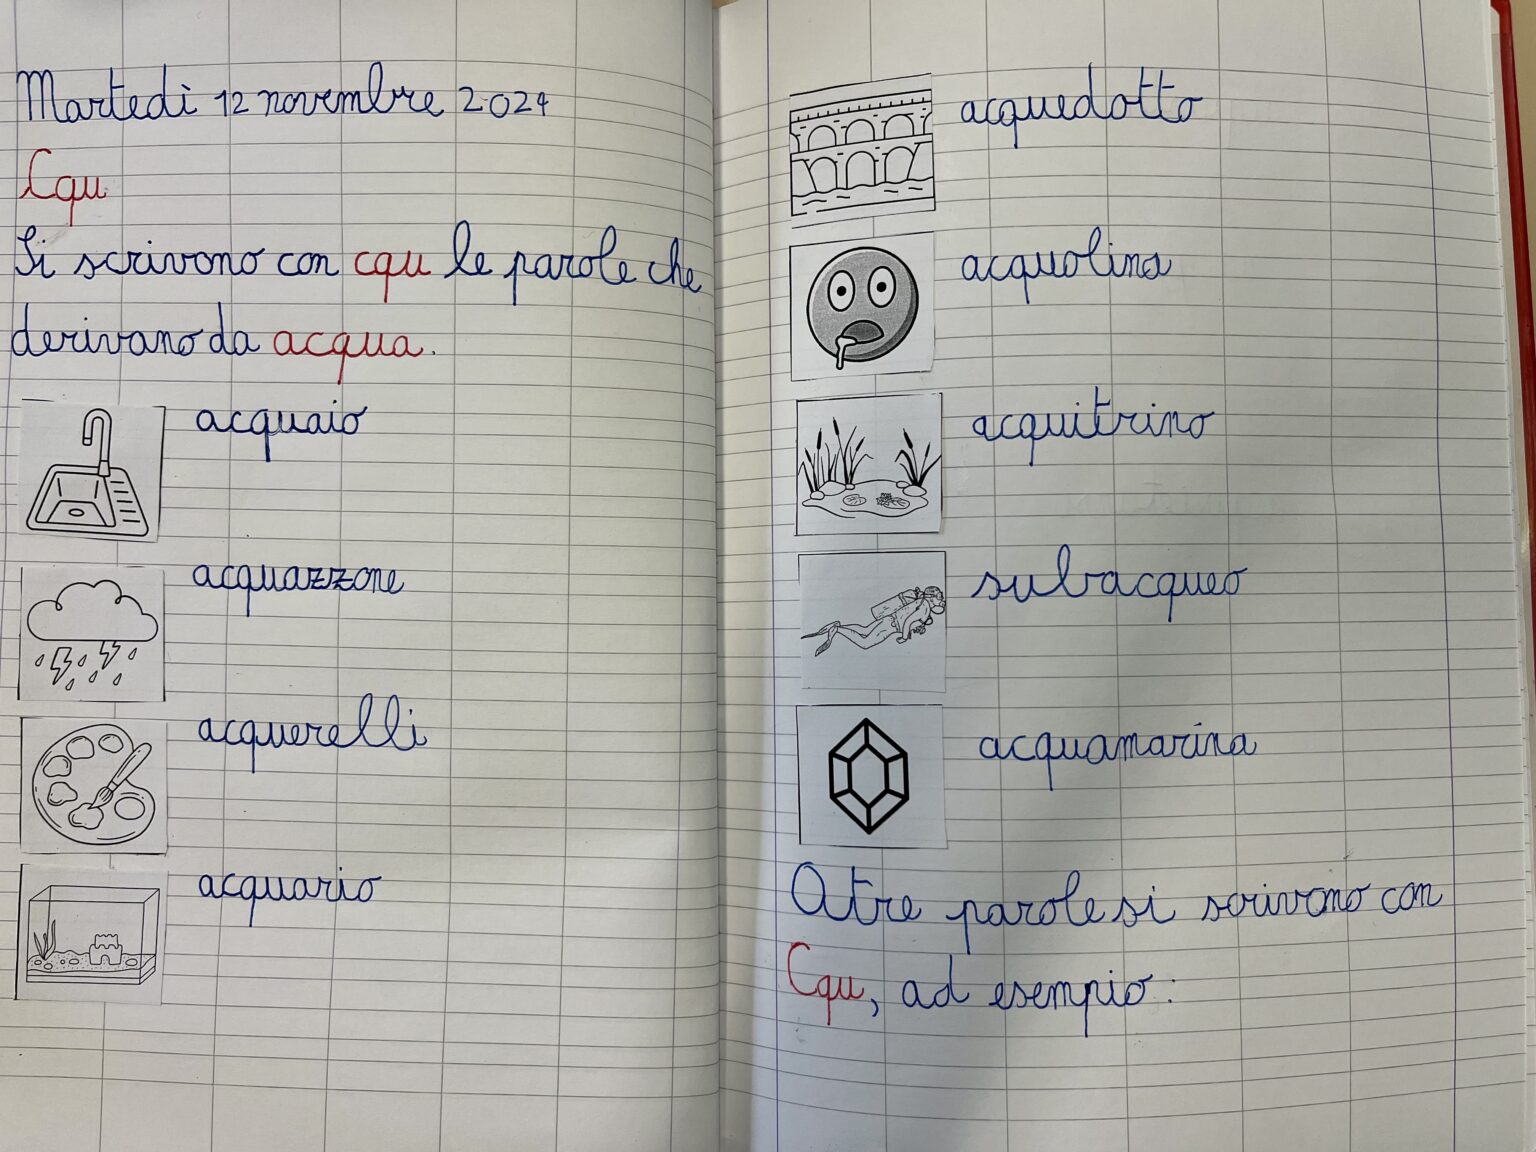 Martedì 12 novembre 2024
Cqu
Si scrivono con cqu le parole che
derivano da acqua.
acquaio
acquazzone
acquerelli
acquario
acquedotto
acquolina
acquitrino
subacqueo
acquamarina
Altre parole si scrivono con
Cqu, ad esempio: